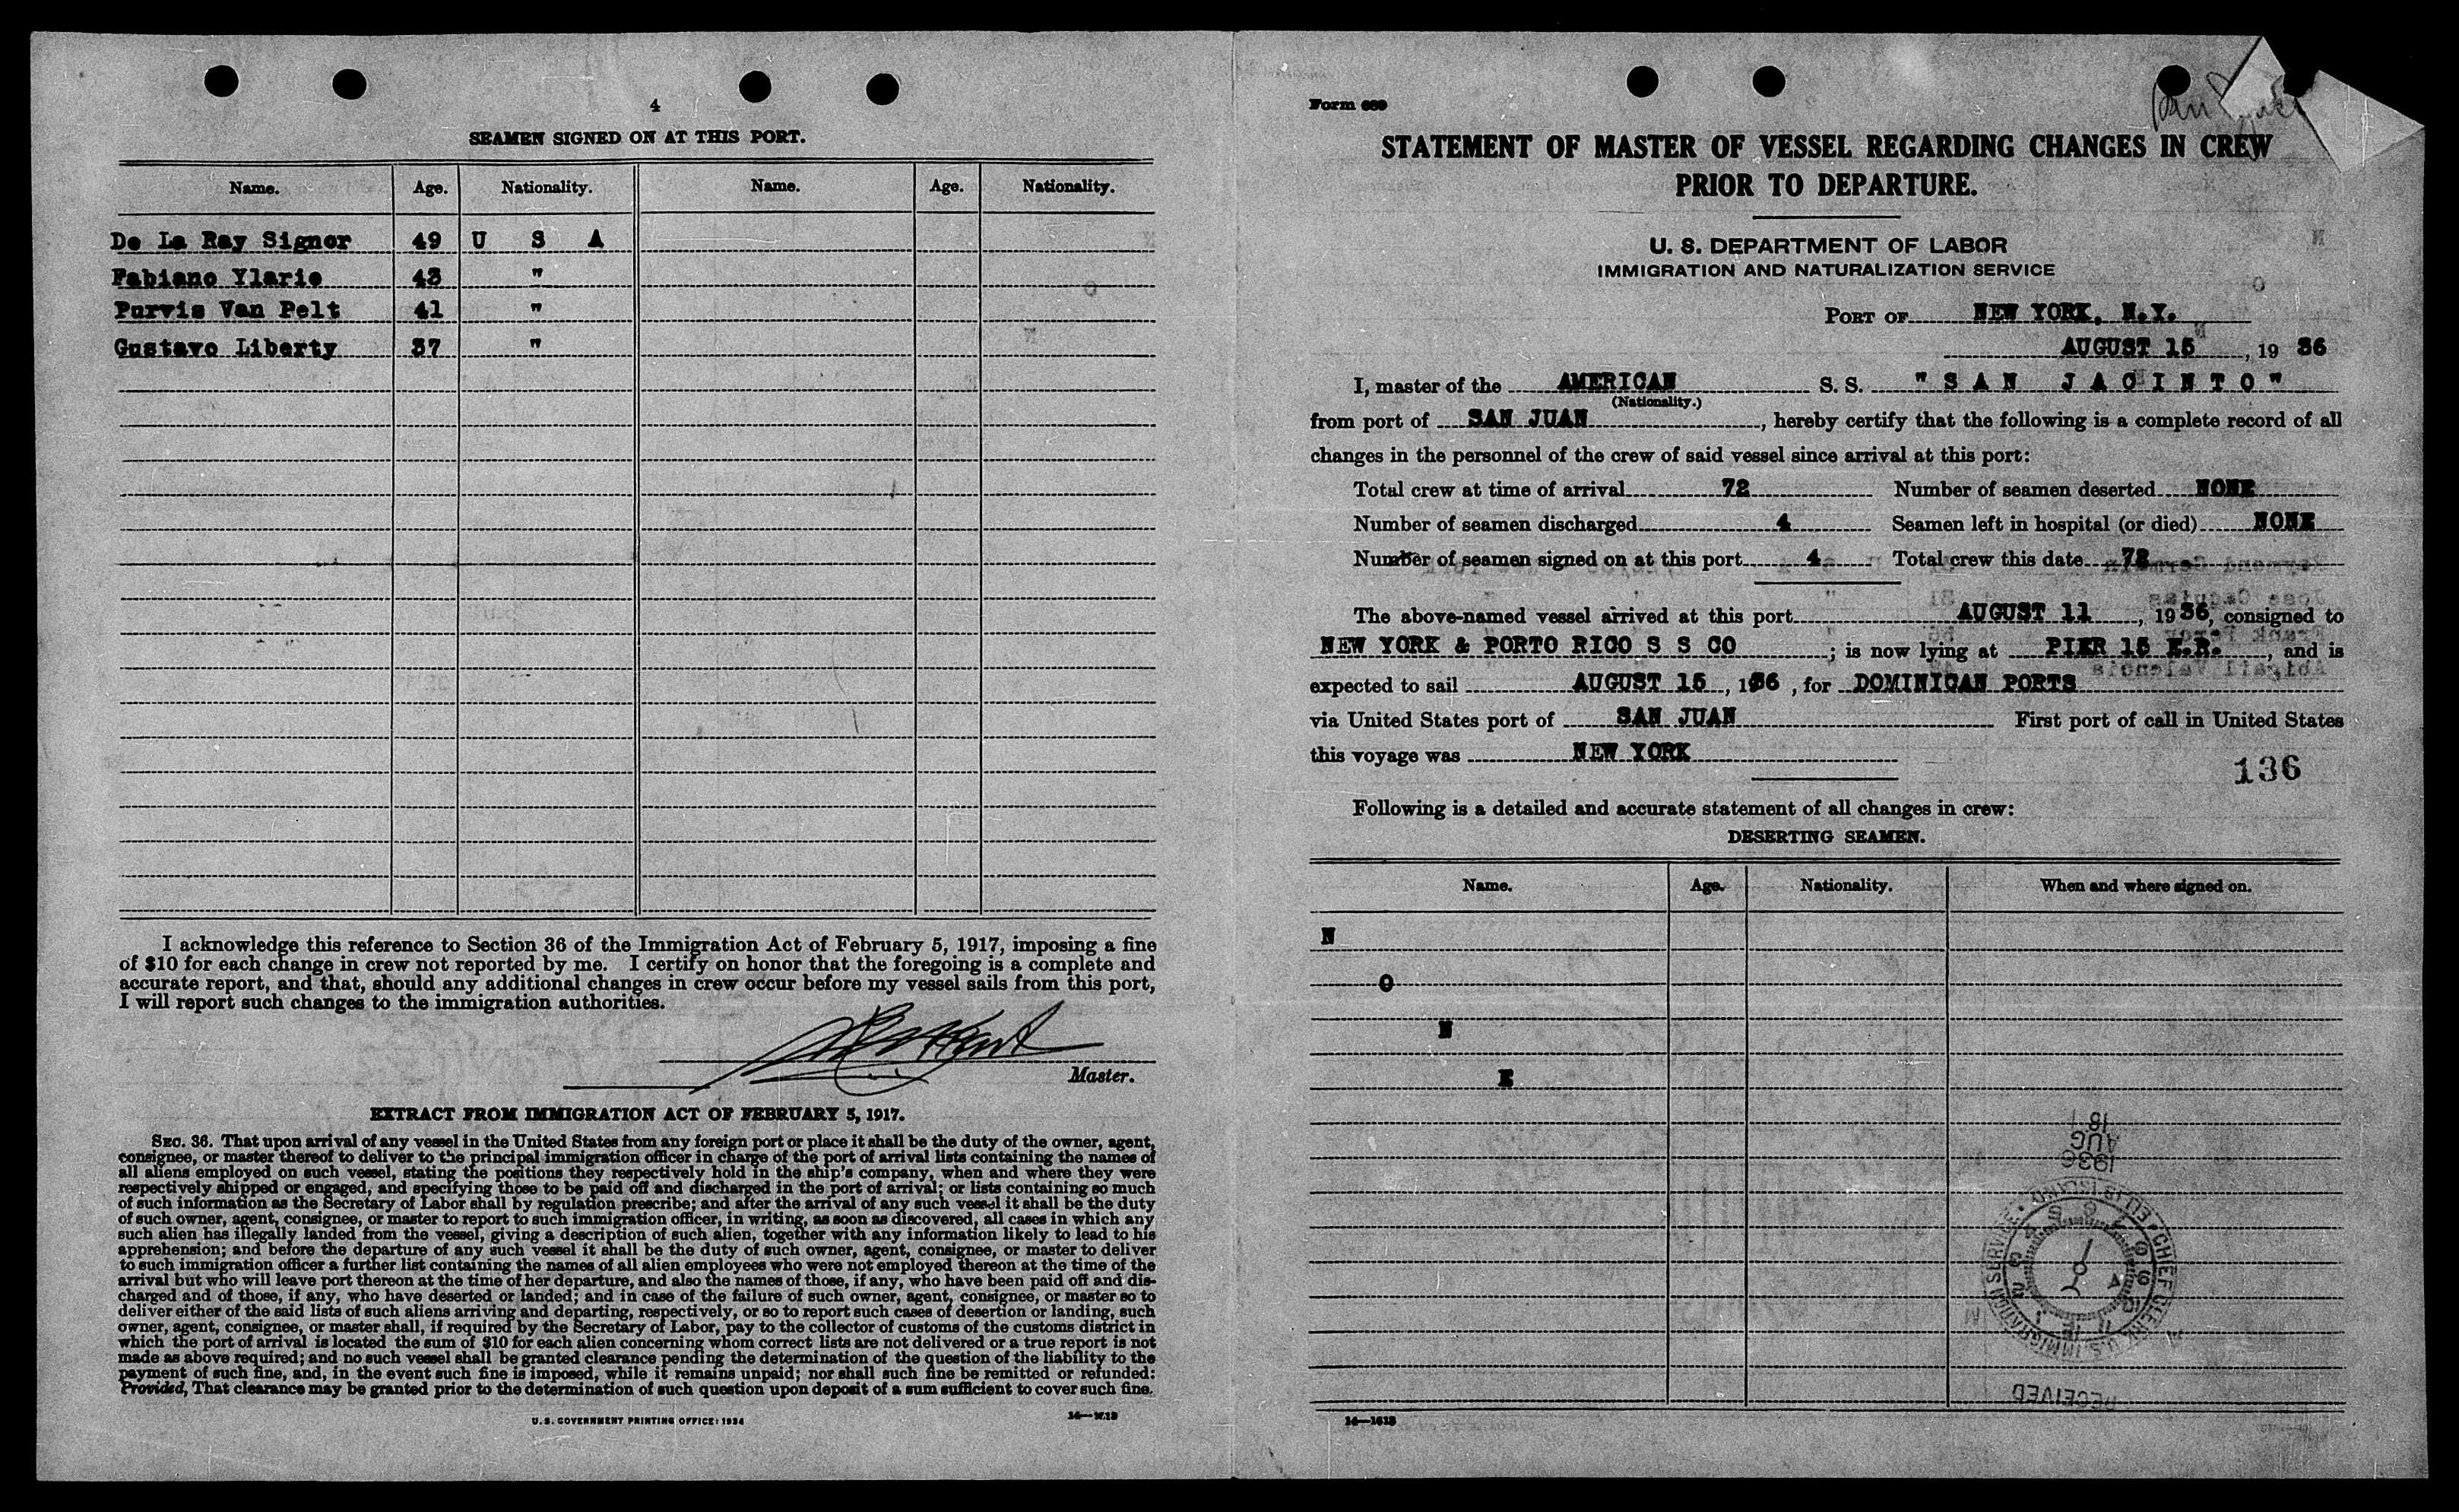 4
SEAMEN SIGNED ON AT THIS PORT.
Name. Age. Nationality. Name. Age. Nationality.
De La Ray Signor 49 U S A
Fabiano Ylario 43 "
Purvis Van Pelt 41 "
Gustavo Liberty 37 "
I acknowledge this reference to Section 36 of the Immigration Act of February 5, 1917, imposing a fine
of $10 for each change in crew not reported by me. I certify on honor that the foregoing is a complete and
accurate report, and that, should any additional changes in crew occur before my vessel sails from this port,
I will report such changes to the immigration authorities.
Master.
EXTRACT FROM IMMIGRATION ACT OF FEBRUARY 5, 1917.
SEC. 36. That upon arrival of any vessel in the United States from any foreign port or place it shall be the duty of the owner, agent,
consignee, or master thereof to deliver to the principal immigration officer in charge of the port of arrival lists containing the names of
all aliens employed on such vessel, stating the positions they respectively hold in the ship's company, when and where they were
respectively shipped or engaged, and specifying those to be paid off and discharged in the port of arrival; or lists containing so much
of such information as the Secretary of Labor shall by regulation prescribe; and after the arrival of any such vessel it shall be the duty
of such owner, agent, consignee, or master to report to such immigration officer, in writing, as soon as discovered, all cases in which any
such alien has illegally landed from the vessel, giving a description of such alien, together with any information likely to lead to his
apprehension; and before the departure of any such vessel it shall be the duty of such owner, agent, consignee, or master to deliver
to such immigration officer a further list containing the names of all alien employees who were not employed thereon at the time of the
arrival but who will leave port thereon at the time of her departure, and also the names of those, if any, who have been paid off and dis-
charged and of those, if any, who have deserted or landed; and in case of the failure of such owner, agent, consignee, or master so to
deliver either of the said lists of such aliens arriving and departing, respectively, or so to report such cases of desertion or landing, such
owner, agent, consignee, or master shall, if required by the Secretary of Labor, pay to the collector of customs of the customs district in
which the port of arrival is located the sum of $10 for each alien concerning whom correct lists are not delivered or a true report is not
made as above required; and no such vessel shall be granted clearance pending the determination of the question of the liability to the
payment of such fine, and, in the event such fine is imposed, while it remains unpaid; nor shall such fine be remitted or refunded:
Provided, That clearance may be granted prior to the determination of such question upon deposit of a sum sufficient to cover such fine.
U. S. GOVERNMENT PRINTING OFFICE: 1934
Form 689
STATEMENT OF MASTER OF VESSEL REGARDING CHANGES IN CREW
PRIOR TO DEPARTURE.
U. S. DEPARTMENT OF LABOR
IMMIGRATION AND NATURALIZATION SERVICE
PORT OF NEW YORK, N.Y.
AUGUST 15, 19 36
I, master of the AMERICAN S. S. "S A N J A C I N T O"
(Nationality.)
from port of SAN JUAN, hereby certify that the following is a complete record of all
changes in the personnel of the crew of said vessel since arrival at this port:
Total crew at time of arrival 72 Number of seamen deserted NONE
Number of seamen discharged 4 Seamen left in hospital (or died) NONE
Number of seamen signed on at this port 4 Total crew this date 72
The above-named vessel arrived at this port AUGUST 11, 1936, consigned to
NEW YORK & PORTO RICO S S CO; is now lying at PIER 15 E.R., and is
expected to sail AUGUST 15, 1936, for DOMINICAN PORTS
via United States port of SAN JUAN First port of call in United States
this voyage was NEW YORK
136
Following is a detailed and accurate statement of all changes in crew:
DESERTING SEAMEN.
Name. Age. Nationality. When and where signed on.
N
O
N
E
18
AUG
1936
RECEIVED
14—1613